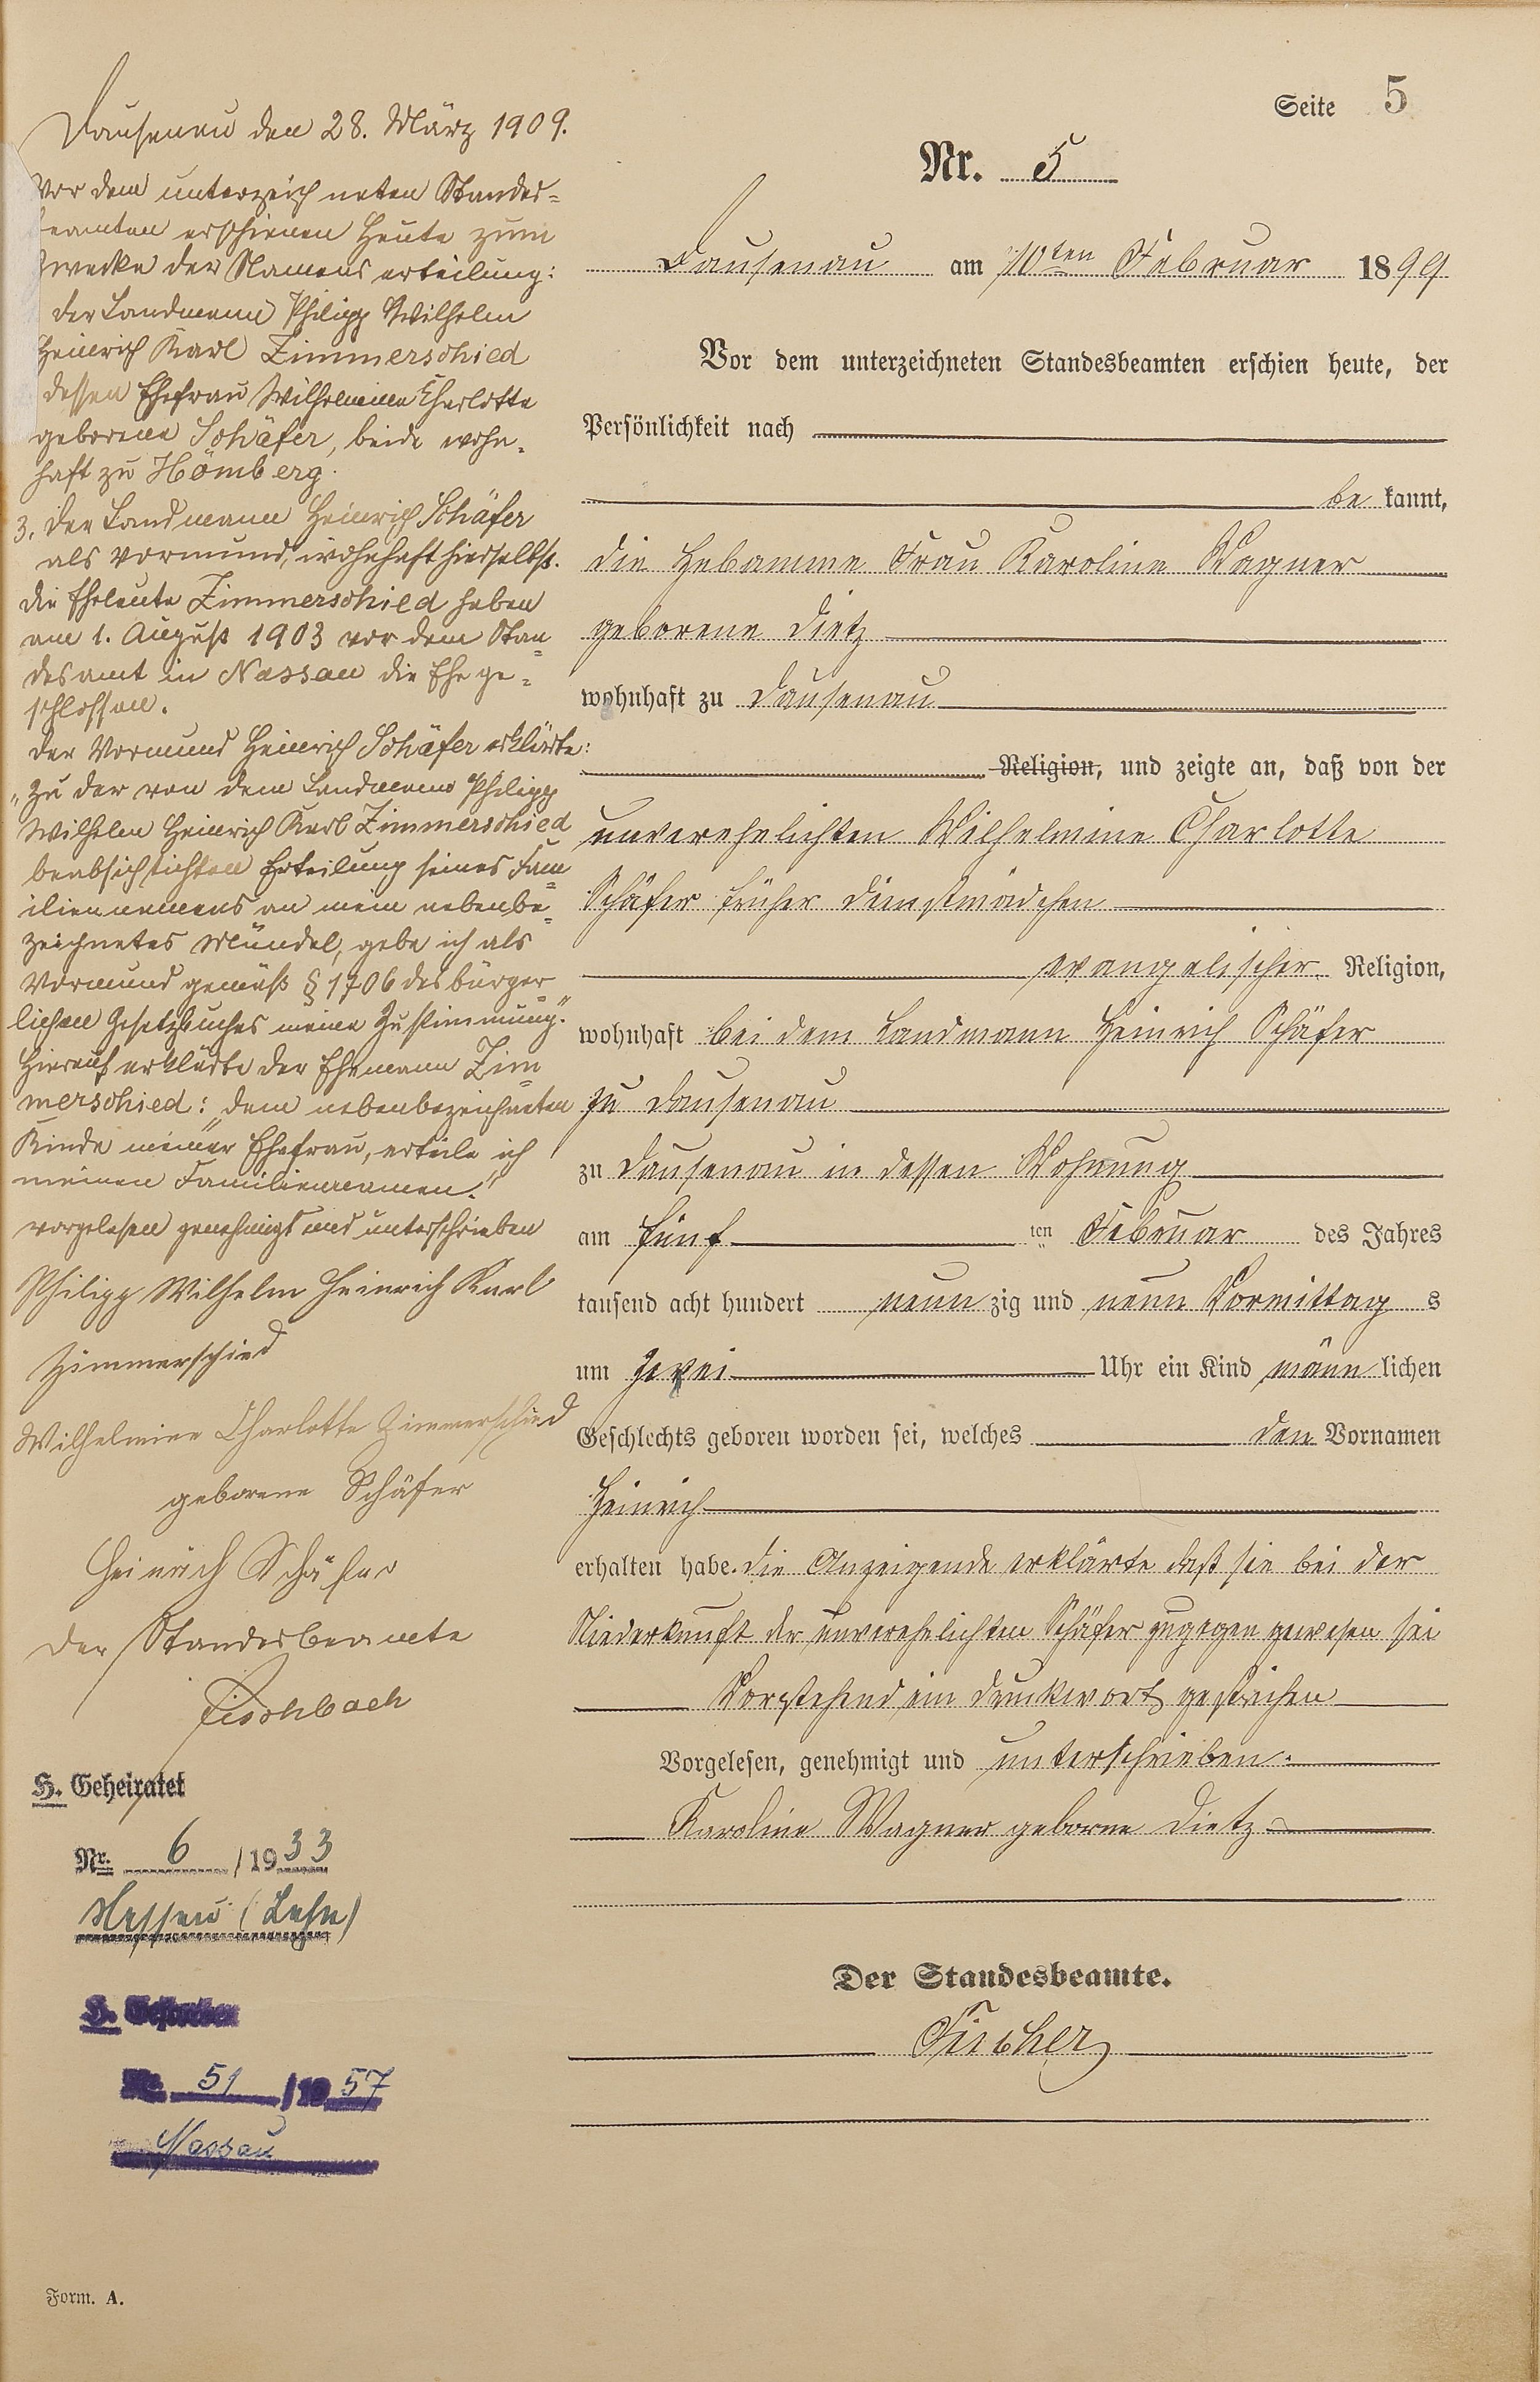 Seite 5
Nr. 5
Dausenau am 10ten Februar 1899
Vor dem unterzeichneten Standesbeamten erschien heute, der
Persönlichkeit nach
be kannt,
die Hebamme Frau Karoline Wagner
geborene Dietz
wohnhaft zu Dausenau
Religion, und zeigte an, daß von der
unverehelichten Wilhelmine Charlotte
Schäfer früher Dienstmädchen
evangelischer Religion,
wohnhaft bei dem Landmann Heinrich Schäfer
zu Dausenau
zu Dausenau in dessen Wohnung
am fünf ten Februar des Jahres
tausend acht hundert neun zig und neun Vormittag s
um zwei Uhr ein Kind männ lichen
Geschlechts geboren worden sei, welches den Vornamen
Heinrich
erhalten habe. Die Anzeigende erklärte daß sie bei der
Niederkunft der unverehelichten Schäfer zugegen gewesen sei
Vorstehend ein Druckwort gestrichen
Vorgelesen, genehmigt und unterschrieben.
Karoline Wagner geborne Dietz
Der Standesbeamte.
Fischer
Dausenau den 28. März 1909.
Vor dem unterzeichneten Standes=
beamten erschienen heute zum
Zwecke der Namenserteilung:
der Landmann Philipp Wilhelm
Heinrich Karl Zimmerschied
dessen Ehefrau Wilhelmine Charlotte
geborene Schäfer, beide wohn=
haft zu Hömberg.
3. der Landmann Heinrich Schäfer
als Vormund, wohnhaft hierselbst.
Die Eheleute Zimmerschied haben
am 1. August 1903 vor dem Stan=
desamt in Nassau die Ehe ge=
schlossen.
Der Vormund Heinrich Schäfer erklärte:
"Zu der von dem Landmann Philipp
Wilhelm Heinrich Karl Zimmerschied
beabsichtichten Erteilung seines Fam=
iliennamens an mein nebenbe=
zeichnetes Mündel, gebe ich als
Vormund gemäß § 1706 des bürger=
lichen Gesetzbuches meine Zustimmung."
Hierauf erklärte der Ehemann Zim=
merschied: "dem nebenbezeichneten
Kinde meiner Ehefrau, erteile ich
meinen Familiennamen."
vorgelesen genehmigt und unterschrieben
Philipp Wilhelm Heinrich Karl
Zimmerschied
Wilhelmine Charlotte Zimmerschied
geborene Schäfer
Heinrich Schäfer
Der Standesbeamte
Fischbach
H. Geheiratet
Nr. 6 /1933
Nassau (Lahn)
Nr. 51 /1957
Nassau
Form. A.